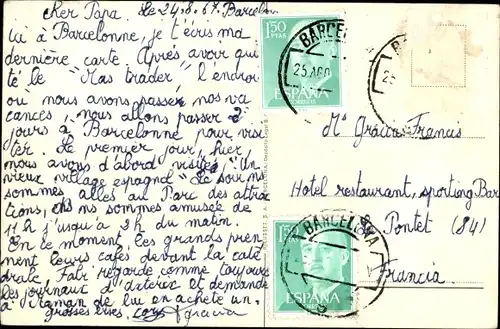 Cher Papa, Le 24.8.67. Barcelone
ici à Barcelonne, je t'écris ma
dernière carte. Après avoir qui
té le "Mas trader" l'endroi
ou nous avons passer nos va
cances, nous allons passer 2
jours à Barcelonne pour visi
ter. Le premier jour, hier,
nous avons d'abord visités "un
vieux village espagnol" Le soir ns
sommes alles au Parc des attrac
tions, ns sommes amusée de
11h jusqu'a 2h du matin.
En ce moment, les grands pren
nent leurs cafés devant la caté
drale, regarde comme toujours
les journaux d' et demande
à Maman de lui en achete un.
grosses bises. gracia
1.50
PTAS
CORREOS
ESPAÑA
BARCELONA
25 AGO
BARCELONA
25
Mr Gracia Francis
Hotel restaurant, sporting Bar
Pontet (84)
Francia
1.50
PTAS
CORREOS
ESPAÑA
BARCELONA